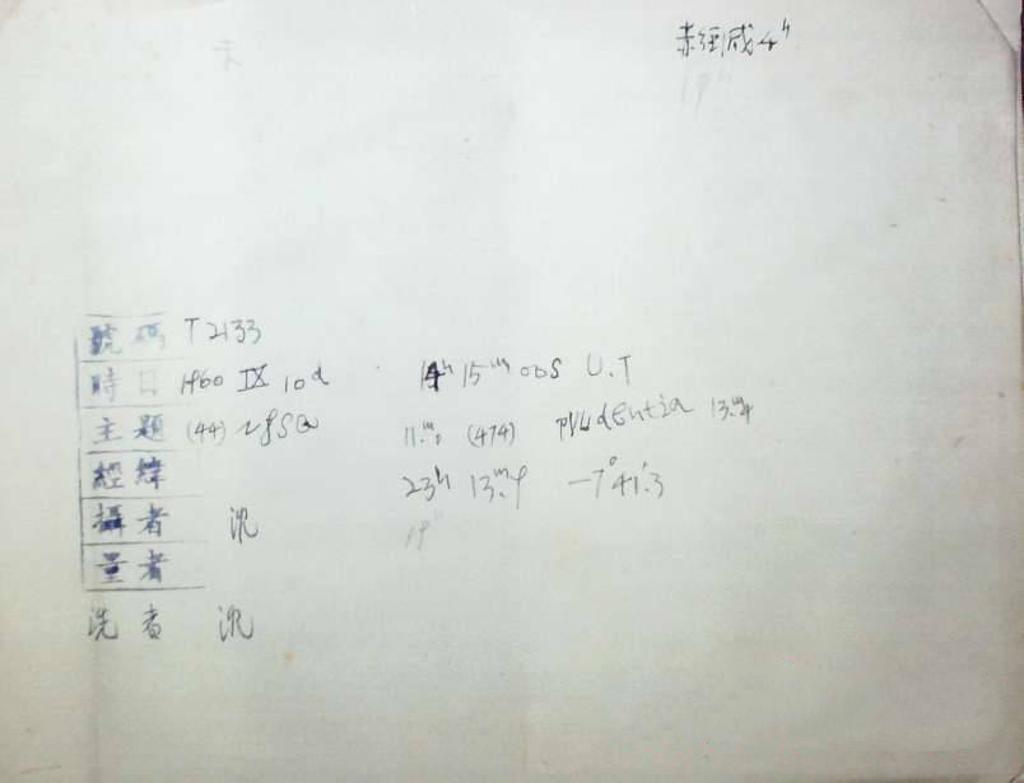 赤經減4ʰ
19ʰ
號碼 T2133
時日 1960 IX 10ᵈ 14ʰ 15ᵐ 00s U.T
主題 (44) Nysa 11.ᵐ0 (474) Prudentia 13.ᵐ4
經緯 23ʰ 13ᵐ.9 -7°41'.3
攝者 沈
19ʰ
量者
洗者 沈